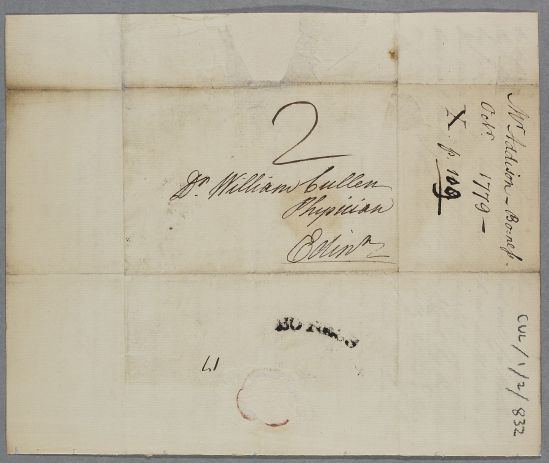 2
Dr. William Cullen
Physician
Edinr
Mr Addison – Boness.
Octr. 1779 –
X. p. 109
BONESS
17
CUL/1/2/832